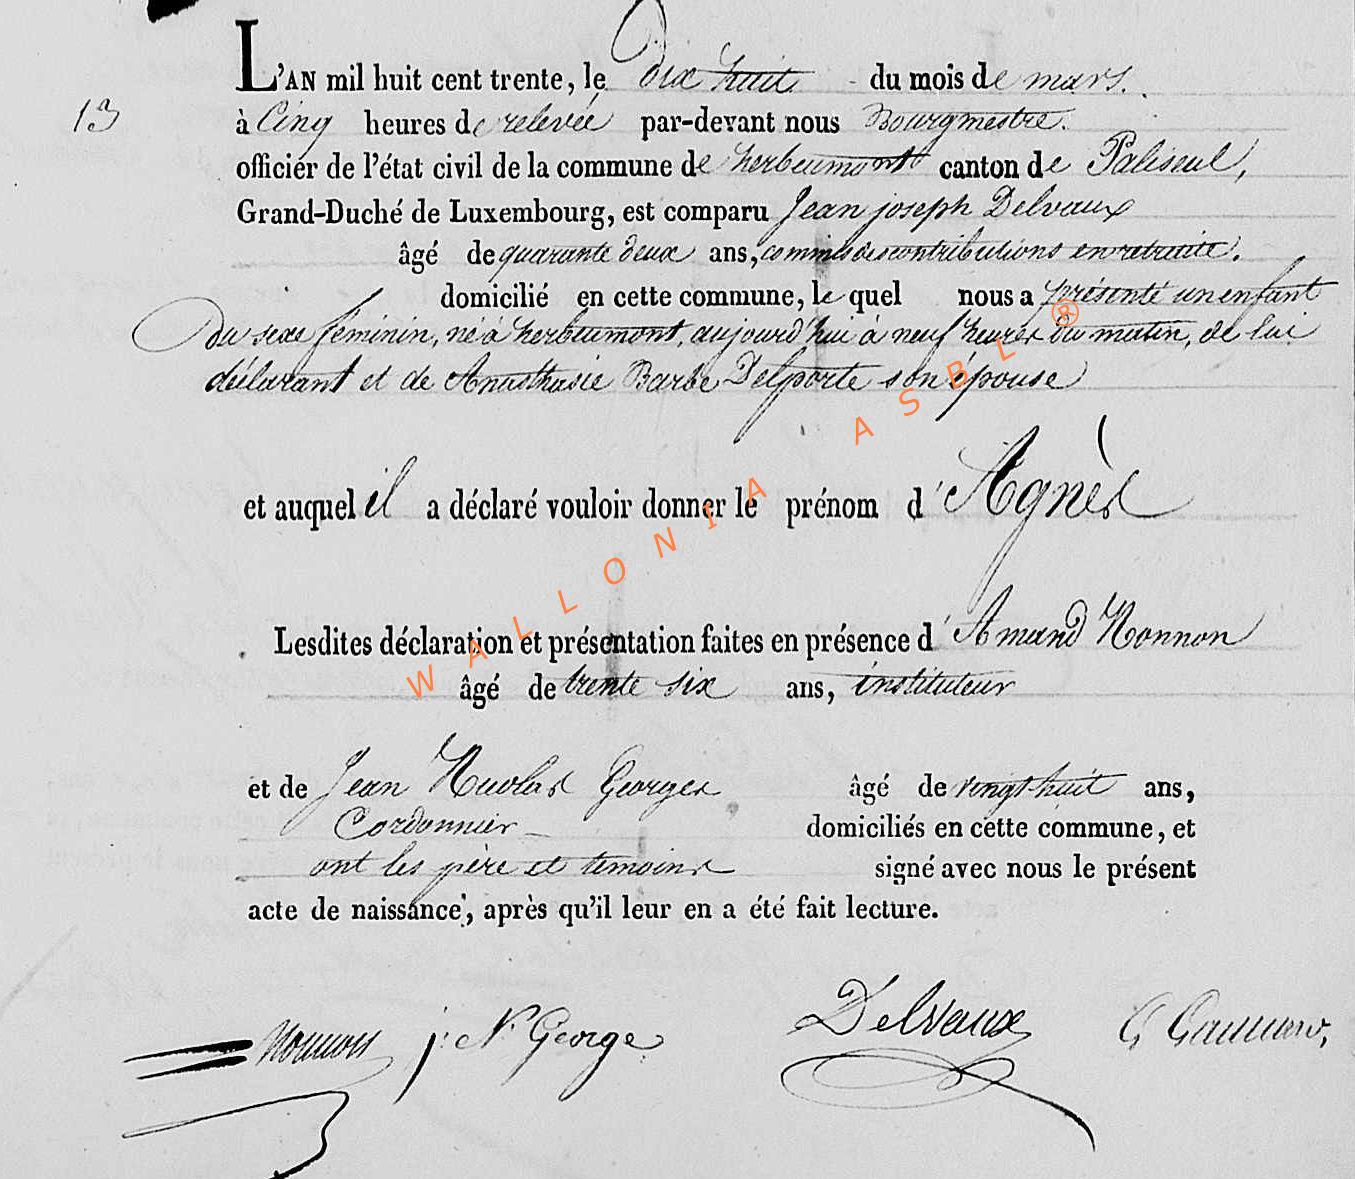 L'AN mil huit cent trente, le dix huit du mois de mars.
13
à Cinq heures de relevée par-devant nous Bourgmestre.
officier de l'état civil de la commune de herbeumont canton de Paliseul,
Grand-Duché de Luxembourg, est comparu Jean joseph Delvaux
âgé de quarante deux ans, commis des contributions en retraite.
domicilié en cette commune, le quel nous a présenté un enfant
du sexe féminin, né à herbeumont, aujourd'hui à neuf heures du matin, de lui
déclarant et de Anasthasie Barbe Delporte son épouse
et auquel il a déclaré vouloir donner le prénom d'Agnès
Lesdites déclaration et présentation faites en présence d'Amand Nonnon
âgé de trente six ans, instituteur
et de Jean Nicolas Georges âgé de vingt huit ans,
Cordonnier domiciliés en cette commune, et
ont les père et temoins signé avec nous le présent
acte de naissance, après qu'il leur en a été fait lecture.
Nonnon j. N. George Delvaux G
WALLONIA ASBL ®